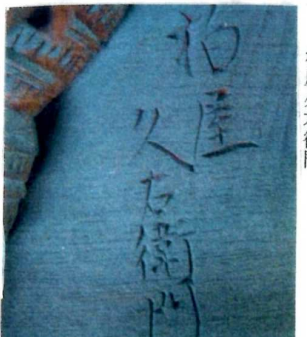 柏屋
久右衛門